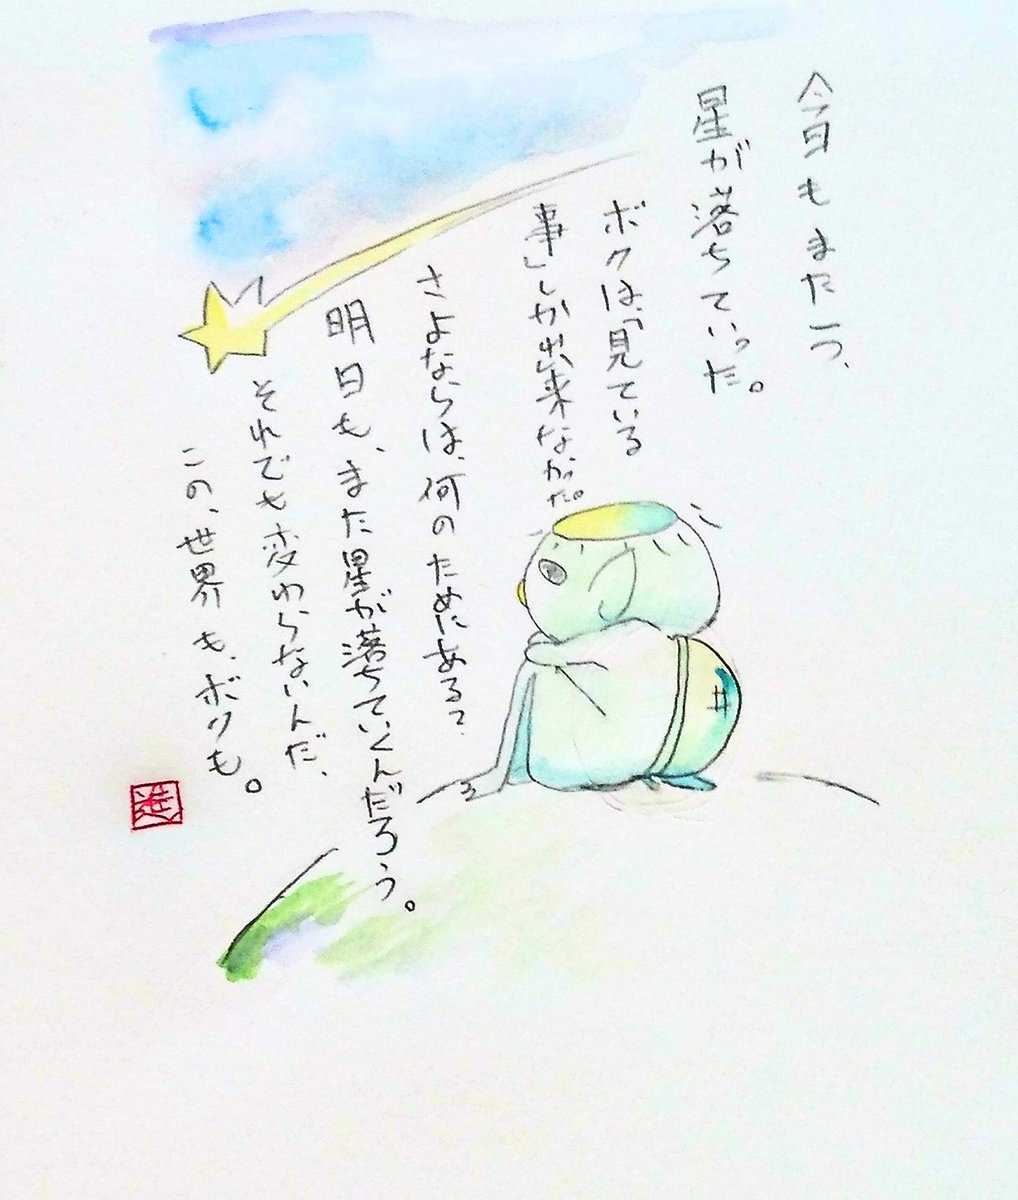 今日もまた一つ、
星が落ちていった。
ボクは、「見ている
事」しか出来なかった。
さよならは、何のためにある?
明日も、また星が落ちていくんだろう。
それでも変わらないんだ、
この、世界も、ボクも。
進